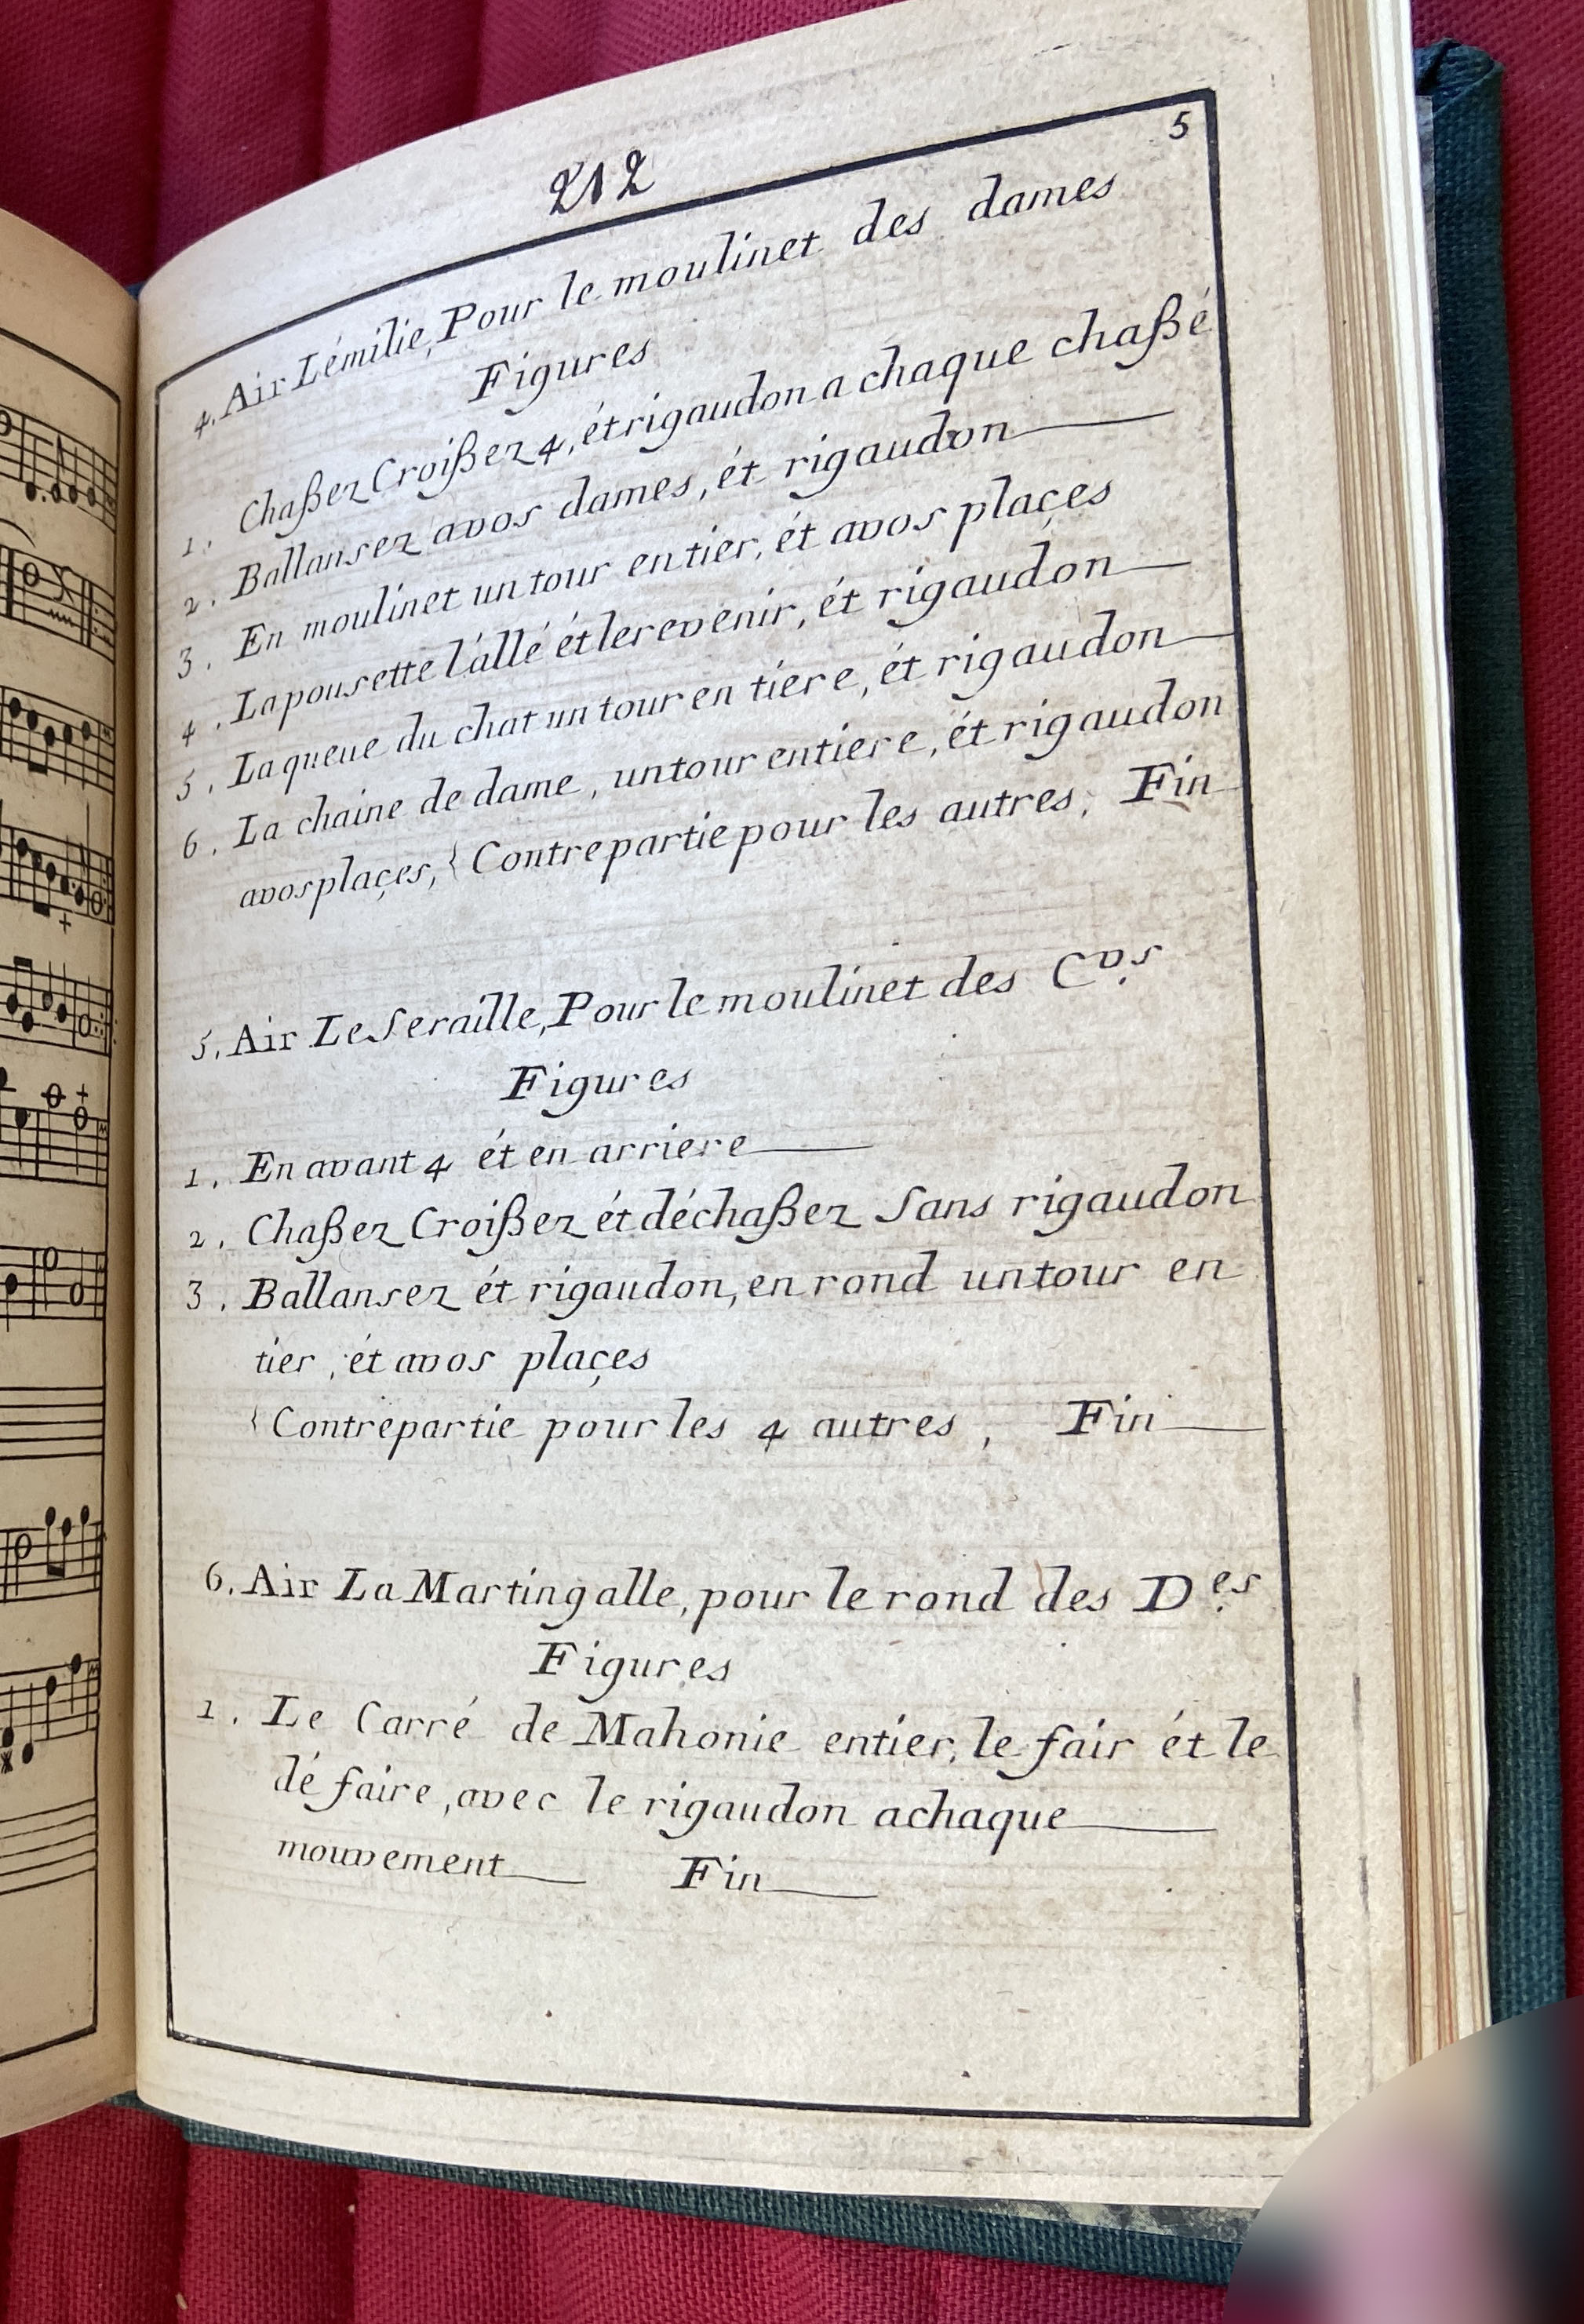 212
5
4. Air Lémilie, Pour le moulinet des dames
Figures
1. Chaßez Croißez 4, ét rigaudon a chaque chaßé
2. Ballansez a vos dames, ét rigaudon
3. En moulinet un tour entier, ét a vos plaçes
4. La pousette l'allé ét le revenir, ét rigaudon
5. La queue du chat un tour en tiere, ét rigaudon
6. La chaine de dame, un tour entiere, ét rigaudon
a vos plaçes, { Contre partie pour les autres, Fin
5. Air Le Seraille, Pour le moulinet des Cvs.
Figures
1. En avant 4 ét en arriere
2. Chaßez Croißez ét déchaßez Sans rigaudon
3. Ballansez ét rigaudon, en rond un tour en
tier, ét a vos plaçes
{ Contrepartie pour les 4 autres, Fin
6. Air La Martingalle, pour le rond des Des.
Figures
1. Le Carré de Mahonie entier, le fair ét le
dé faire, avec le rigaudon a chaque
mouvement Fin